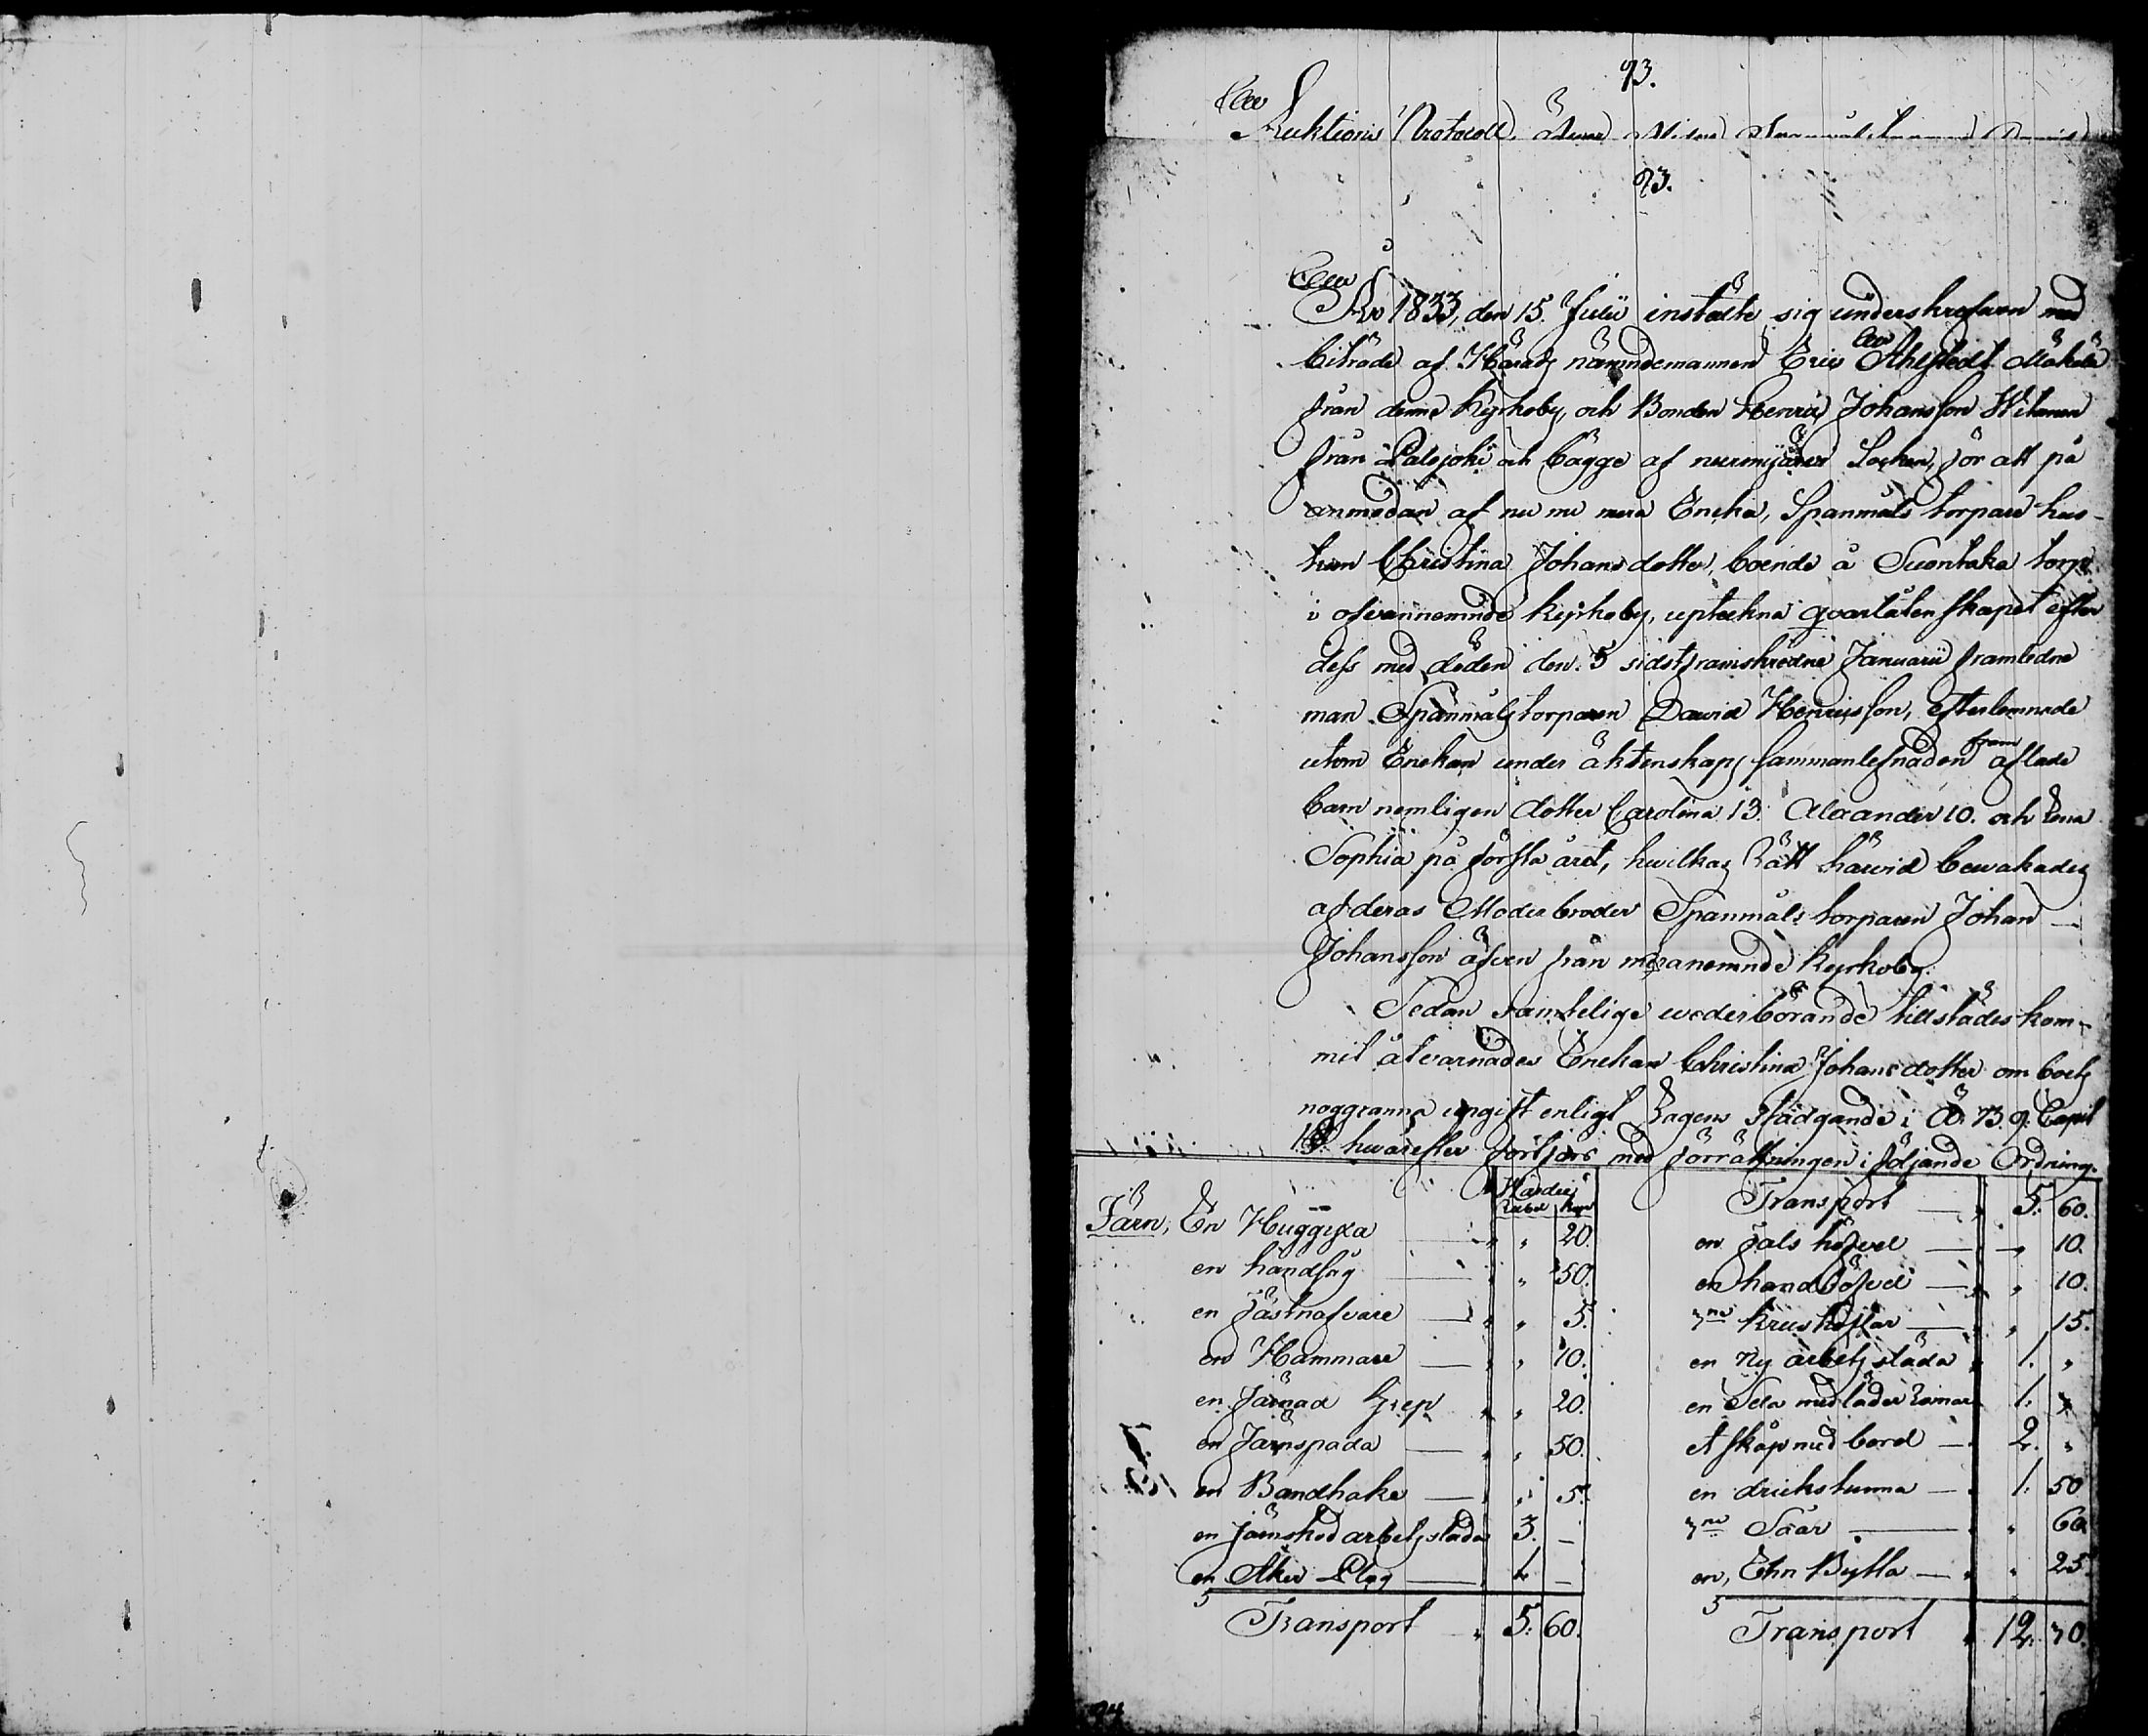 93.
Auktions Protocoll, öfver
93.
År 1833, den 15. Julii instälte sig underskrefven med
biträde af Härads nämndemannen Eric Ahlstedt Mäkelä
från denne Kyrkoby, och Bonden Henric Johansson Witanen
från Palojoki och bägge af nurmijärvi Socken, för att på
anmodan af nu me mera Encka, Spanmåls torpare hus-
trun Christina Johansdotter, boende å Suontaka torp
i ofvannemnde kyrkoby, uptekna qvarlåtenskapet efter
dess med döden den 5 sidstframskredne Januarii framledne
man Spanmåls torparen David Henricsson, efterlemnade
utom Enckan under äktenskaps sammanlefnaden fram aflade
barn nemligen dotter Carolina 13. Alexander 10. och Lena
Sophia på första året, hvilkas Rätt härvid bevakades
af deras Moderbroder Spanmåls torparen Johan
Johansson äfven från meranemnde kyrkoby.
Sedan samtelige vederbörande tillstädes kom-
mit åtvarnades Enckan Christina Johansdotter om boets
noggranna upgift enligt Lagens stadgande i ÄB. 9. Capit
hvarefter fortfors med förrättningen i följande Ordning.
Värdie
Rubel Kop
Järn, En Huggyxa " 20.
en handsåg " 50.
en Fästnafvare " 5.
en Hammare " 10.
en Järnad Grep " 20.
en Järnspada " 50.
en Bandhake " 5.
en järnskod arbetssläda 3. –
en Åker Plog 1. –
Transport 5. 60.
Transport 5. 60.
en fals höfvel " 10.
en handhöfvel " 10.
3ne krushöflar " 15.
en ny arbets släda 1. "
en Sela med läder Remar 1. "
et skåp med bord 2. "
en drickstunna 1. 50
3ne Såar " 60.
en, Ehn Bytta " 25.
Transport 12. 70.